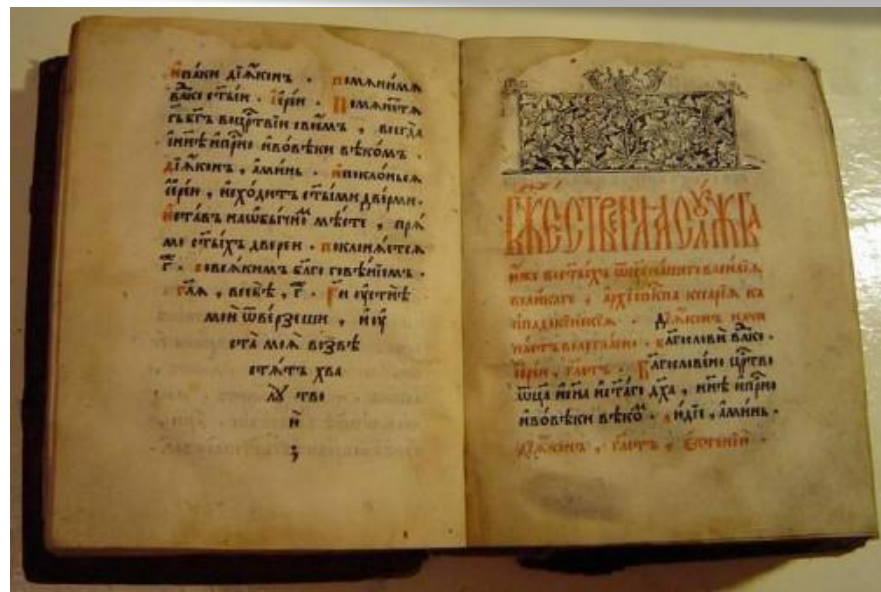 И҆па́ки дїа́конъ . помѧни́мѧ
влⷣко ст҃ы́и . їере́и . Помѧне́тъ тѧ
гь бг҃ъ воцрⷭ҇твїи свое́мъ , всегда̀
ни́нѣ и҆при́сно и҆во́вѣки вѣко́мъ .
дїа́конъ , а҆ми́нь . и҆поклони́всѧ
їере́и , и҆схо́дитъ ст҃ы́ми две́рми .
И҆ста́въ наѡ҆бы́чнѡⷨ мѣ́сте , прѧ́
мо ст҃ы́хъ две́реи . поклонѧ́етсѧ
г҃ . совсѧ́кимъ бл҃го говѣ́нїемъ .
гл҃ѧ , всебѣ̀ , г҃ . Гⷭ҇и оу҆стнѣ̀
мои̑ ѿве́рзеши , и҆оу҆
ста̀ моѧ̑ возвѣ
стѧ́тъ хва
лꙋ̀ тво
ю̀
;
БЖ҃ЕСТВЕНАѦ СЛꙊЖБА
и҆́же вост҃ы́хъ ѿц҃а на́шего васи́лїѧ
вели́кагѡ , а҆рхїепⷭ҇кпа кесарі́ѧ ка
ппадокі́искїѧ . Дїа́конъ начи
на́етъ велегла́сно . бл҃гословѝ влⷣко .
їере́и , гл҃етъ . Бл҃гослове́но црⷭ҇тво
ѿц҃а и҆сн҃а и҆ст҃а́го дх҃а , ни́нѣ и҆при́сно
и҆во́вѣки вѣкоⷨ . людїе , а҆ми́нь .
Дїа́конъ , гл҃етъ , е҆ктенїи .